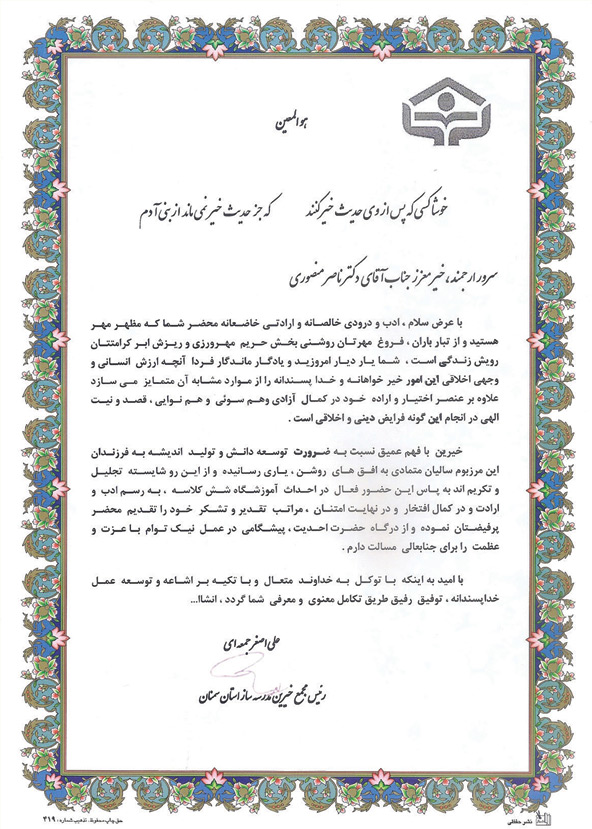 هوالمعین
خوشا کسی که پس از وی حدیث خیر کنند که جز حدیث خیر نمی ماند از بنی آدم
سرور ارجمند، خیر معزز جناب آقای دکتر ناصر منصوری
با عرض سلام ، ادب و درودی خالصانه و ارادتی خاضعانه محضر شما که مظهر مهر
هستید و از تبار باران ، فروغ مهرتان روشنی بخش حریم مهرورزی و ریزش ابر کرامتتان
رویش زندگی است ، شما یار دیار امروزید و یادگار ماندگار فردا آنچه ارزش انسانی و
وجهی اخلاقی این امور خیر خواهانه و خدا پسندانه را از موارد مشابه آن متمایز می سازد
علاوه بر عنصر اختیار و اراده خود در کمال آزادی وهم سوئی و هم نوایی ، قصد و نیت
الهی در انجام این گونه فرایض دینی و اخلاقی است .
خیرین با فهم عمیق نسبت به ضرورت توسعه دانش و تولید اندیشه به فرزندان
این مرزبوم سالیان متمادی به افق های روشن ، یاری رسانیده و از این رو شایسته تجلیل
و تکریم اند به پاس این حضور فعال در احداث آموزشگاه شش کلاسه ، به رسم ادب و
ارادت و در کمال افتخار و در نهایت امتنان ، مراتب تقدیر و تشکر خود را تقدیم محضر
پرفیضتان نموده و از درگاه حضرت احدیت ، پیشگامی در عمل نیک توام با عزت و
عظمت را برای جنابعالی مسالت دارم .
با امید به اینکه با توکل به خداوند متعال و با تکیه بر اشاعه و توسعه عمل
خداپسندانه ، توفیق رفیق طریق تکامل معنوی و معرفی شما گردد ، انشاا...
علی اصغر جمعه ای
رئیس مجمع خیرین مدرسه ساز استان سمنان
نشر حقانی
حق چاپ محفوظ . تذهیب شماره : ۴۱۹